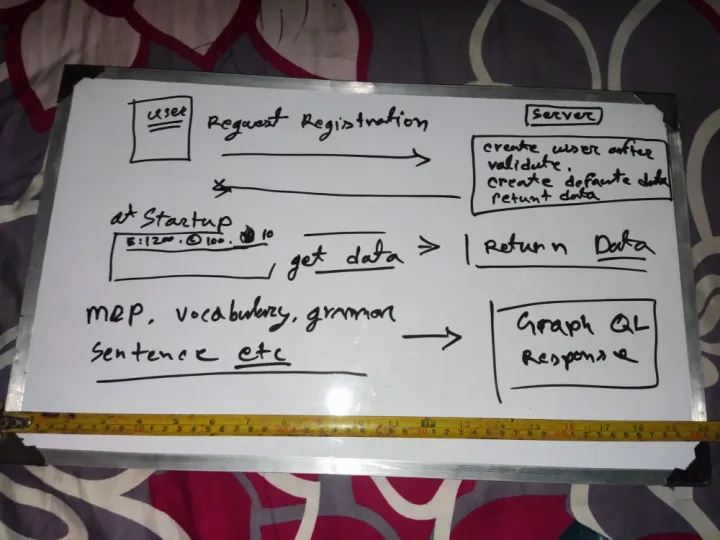 user
Request Registration
Server
create user after
validate.
create defaute data
retunt data
at Startup
E:1200. 100. 10
get data
Return Data
MAP, vocabulary, grammar
Sentence etc
Graph QL
Response